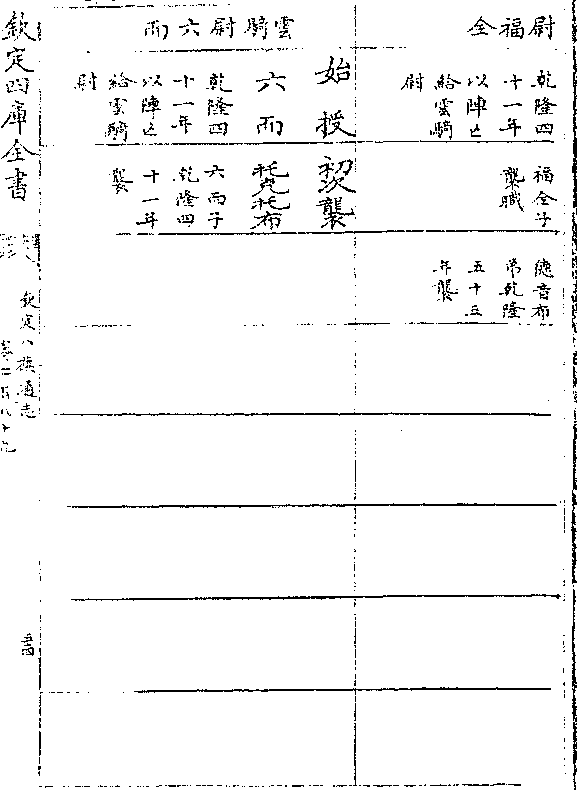 尉福全
乾隆四
十一年
以陣亡
給雲騎
尉
福全子
襲職
德音布
弟乾隆
五十三
年襲
雲騎尉六而
始授
初次襲
六而
乾隆四
十一年
以陣亡
給雲騎
尉
托克托布
六而子
乾隆四
十一年
襲
欽定四庫全書
欽定八旗通志
卷二百八十九